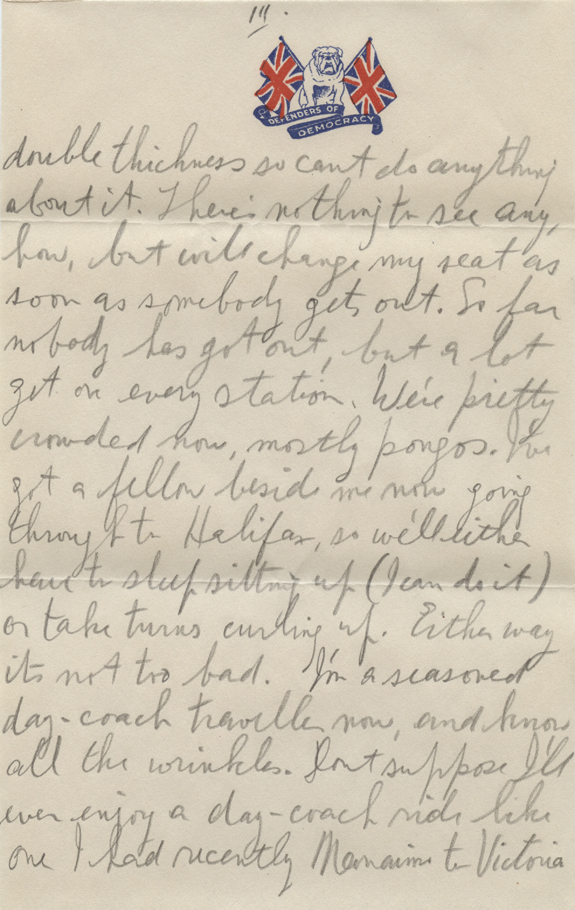 III.
DEFENDERS OF
DEMOCRACY
double thickness so cant do anything
about it. There's nothing to see any,
how, but will change my seat as
soon as somebody gets out. So far
nobody has got out, but a lot
get on every station. We're pretty
crowded now, mostly pongos. I've
got a fellow beside me now going
through to Halifax, so we'll either
have to sleep sitting up (I can do it)
or take turns curling up. Either way
its not too bad. I'm a seasoned
day-coach traveller now, and know
all the wrinkles. Dont suppose I'll
ever enjoy a day-coach ride like
one I had recently Nanaimo to Victoria